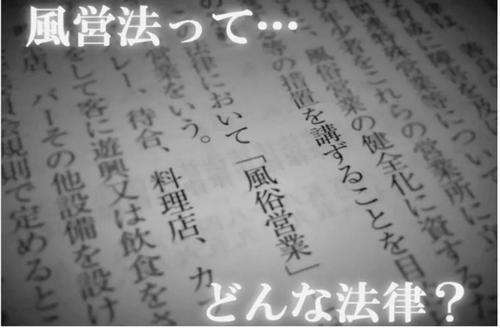 風営法って…
営業等について
年少者をこれらの営業所に立
、風俗営業の健全化に資するた
等の措置を講ずることを目
律において「風俗営業」
営業をいう。
レー、待合、料理店、カフ
をして客に遊興又は飲食をさ
店、バーその他設備を設け
会規則で定めるとこ
どんな法律？